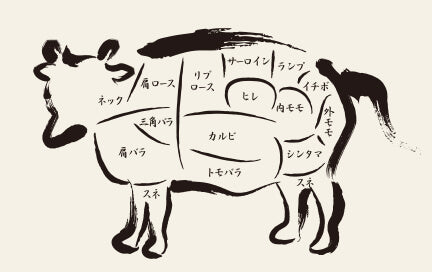 サーロイン
ランプ
リブ
ロース
肩ロース
イチボ
ヒレ
ネック
内モモ
外
モ
モ
三角バラ
カルビ
肩バラ
シンタマ
トモバラ
スネ
スネ